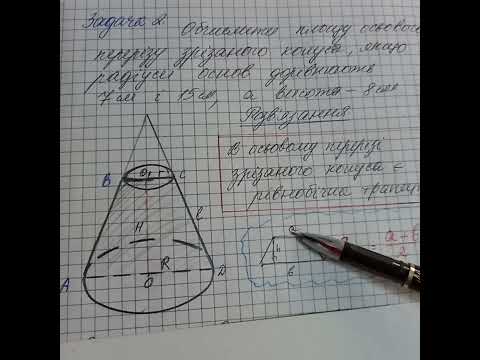 Задача 2. Обчислити площу осьового
перерізу зрізаного конуса, якщо
радіуси основ дорівнюють
7 см і 15 см, а висота – 8 см
Розв'язання
В осьовому перерізі
зрізаного конуса є
рівнобічна
O₁ r
B C
H l
A R D
O
a
h
b
= a+b
2